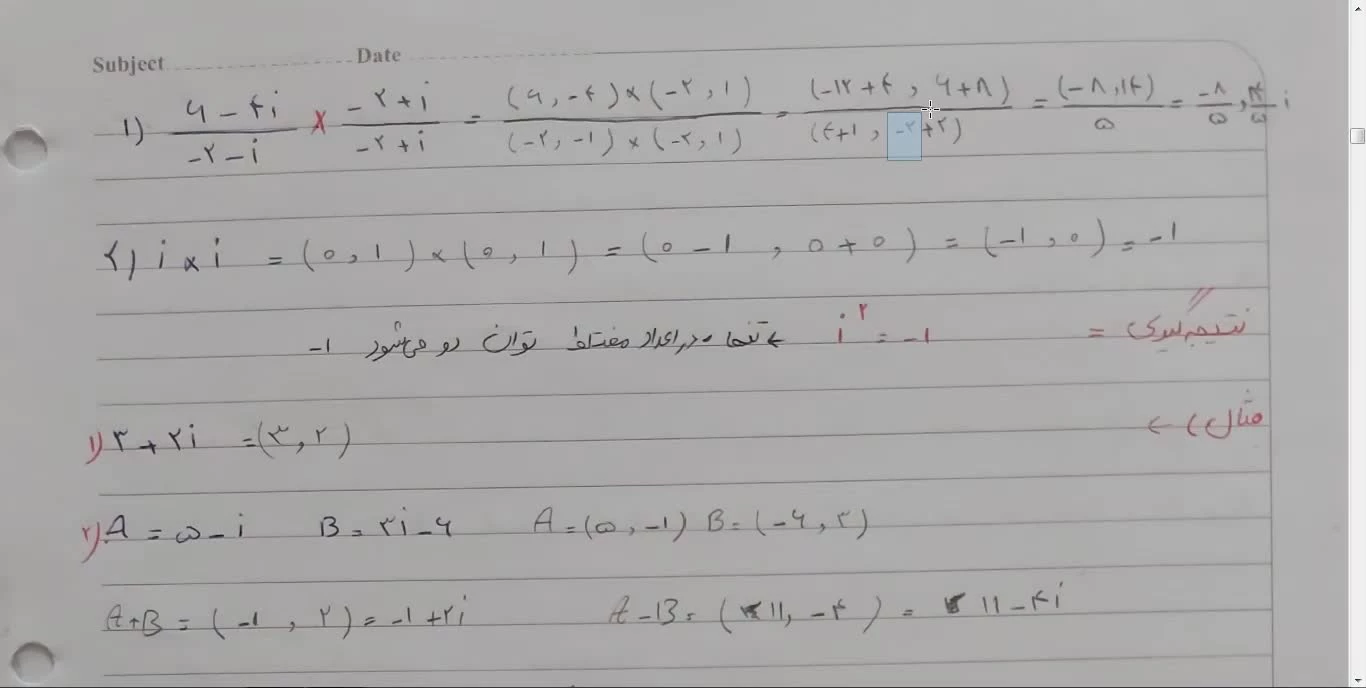 Subject Date
1) (۶ - ۴i)/(-۲ - i) × (-۲+i)/(-۲+i) = ((۶, -۴) × (-۲, ۱))/((-۲, -۱) × (-۲, ۱)) = (-۱۲+۴, ۶+۸)/(۴+۱, -۲+۲) = (-۸, ۱۴)/۵ = -۸/۵, ۱۴/۵ i
۲) i × i = (۰, ۱) × (۰, ۱) = (۰ - ۱, ۰ + ۰) = (-۱, ۰) = -۱
نتیجه‌گیری = i^۲ = -۱ ← تنها در اعداد مختلط توان دو می‌شود -۱
مثال) ←
۱) ۳ + ۲i = (۳, ۲)
۲) A = ۵ - i B = ۳i - ۶ A = (۵, -۱) B = (-۶, ۳)
A+B = (-۱, ۲) = -۱ + ۲i A - B = (۱۱, -۴) = ۱۱ - ۴i